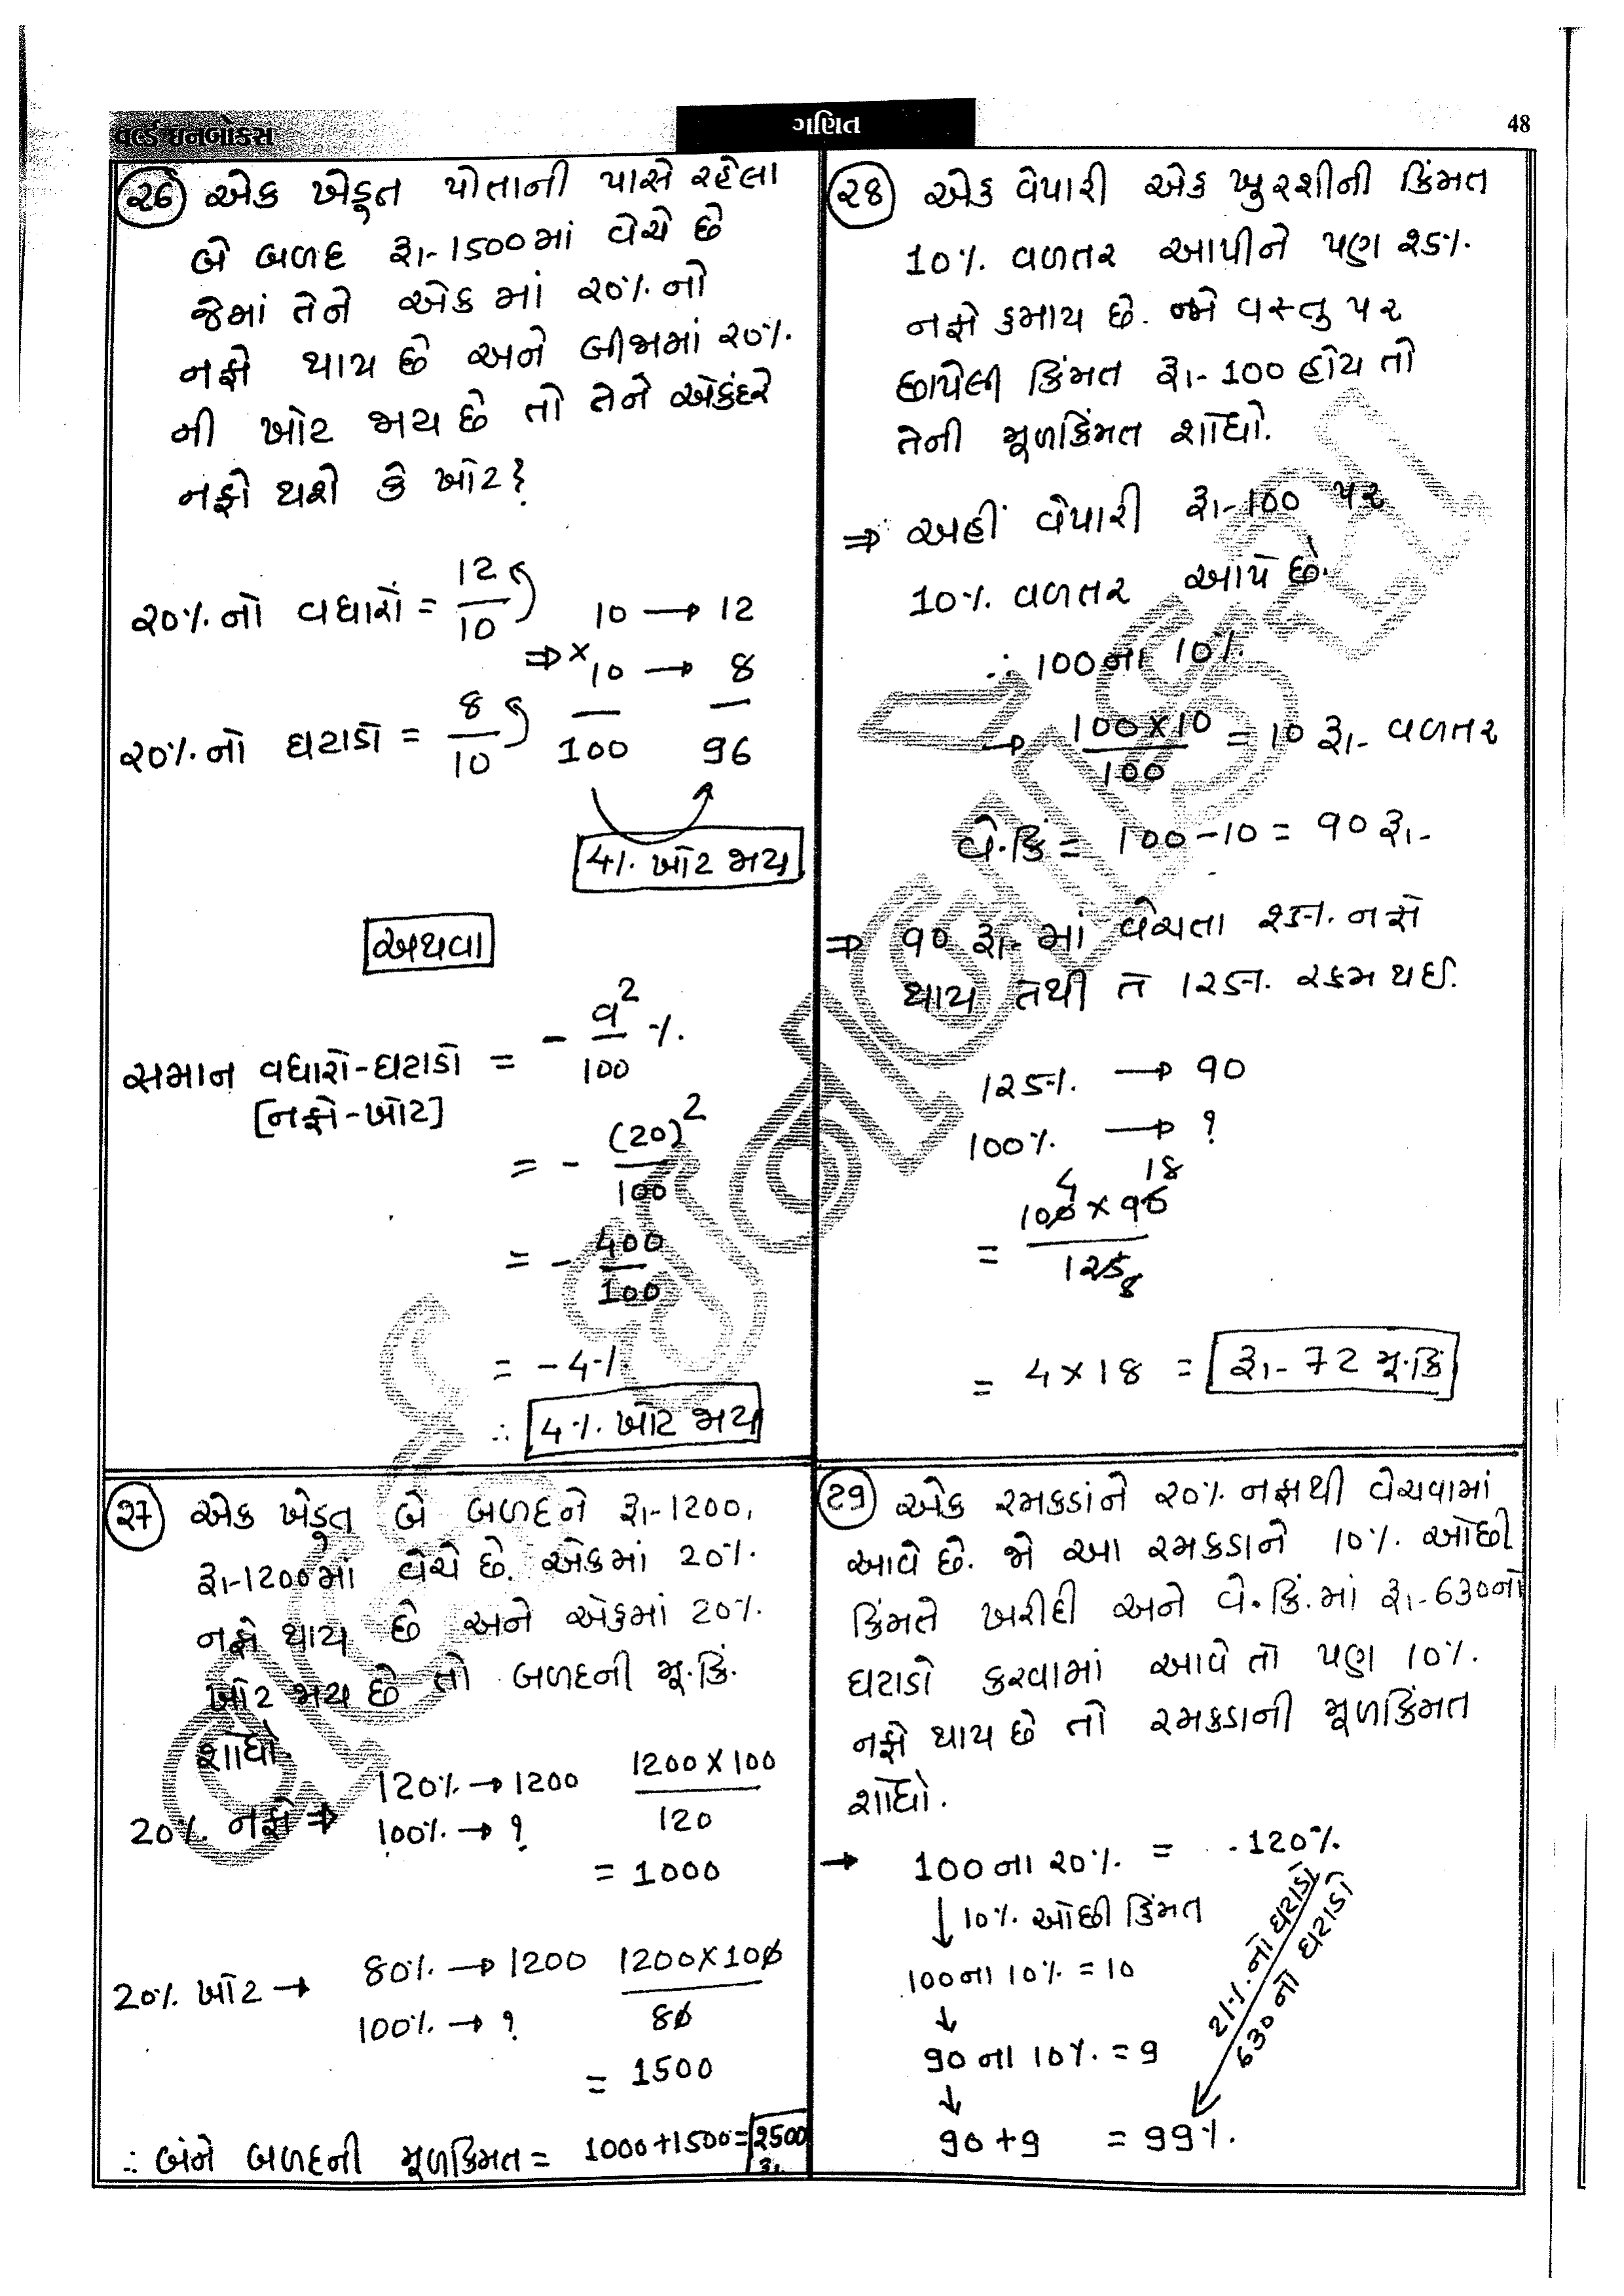 વર્લ્ડ ઇનબોક્સ
ગણિત
48
26 એક ખેડૂત પોતાની પાસે રહેલા
બે બળદ રૂા-1500માં વેચે છે
જેમાં તેને એક માં 20% નો
નફો થાય છે અને બીજામાં 20%
ની ખોટ જાય છે તો તેને એકંદરે
નફો થશે કે ખોટ?
20% નો વધારો = 12/10
10 → 12
⇒ × 10 → 8
20% નો ઘટાડો = 8/10
100 96
4% ખોટ જાય
અથવા
સમાન વધારો-ઘટાડો = - a²/100 %
[નફો-ખોટ]
= - (20)²/100
= - 400/100
= -4%
∴ 4% ખોટ જાય
27 એક ખેડૂત બે બળદને રૂા-1200,
રૂા-1200માં વેચે છે. એકમાં 20%
નફો થાય છે અને એકમાં 20%
ખોટ જાય છે તો બળદની મૂ.કિં.
શોધો.
20% નફો ⇒ 120% → 1200 1200 × 100 / 120
100% → ?
= 1000
20% ખોટ → 80% → 1200 1200 × 100 / 80
100% → ?
= 1500
∴ બંને બળદની મૂળકિંમત = 1000+1500 = 2500 રૂા.
28 એક વેપારી એક ખુરશીની કિંમત
10% વળતર આપીને પણ 25%
નફો કમાય છે. જો વસ્તુ પર
છાપેલી કિંમત રૂા-100 હોય તો
તેની મૂળકિંમત શોધો.
⇒ અહીં વેપારી રૂા-100 પર
10% વળતર આપે છે.
∴ 100ના 10%
→ 100×10/100 = 10 રૂા- વળતર
વે.કિં = 100-10 = 90 રૂા-
⇒ 90 રૂા- માં વેચતા 25% નફો
થાય તેથી તે 125% રકમ થઈ.
125% → 90
100% → ?
4 18
= 100 × 90 / 125 8
= 4 × 18 = રૂા- 72 મૂ.કિં
29 એક રમકડાંને 20% નફાથી વેચવામાં
આવે છે. જો આ રમકડાને 10% ઓછી
કિંમતે ખરીદી અને વે.કિં.માં રૂા-630નો
ઘટાડો કરવામાં આવે તો પણ 10%
નફો થાય છે તો રમકડાની મૂળકિંમત
શોધો.
→ 100ના 20% = 120%
↓ 10% ઓછી કિંમત
100ના 10% = 10
↓
90 ના 10% = 9
↓
90 + 9 = 99%
21% નો ઘટાડો
630 નો ઘટાડો